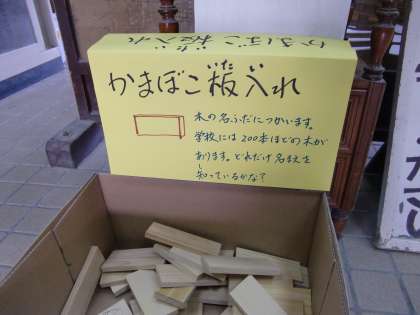 かまぼこ板入れ
いた
かまぼこ板入れ
木の名ふだにつかいます。
学校には200本ほどの木が
あります。どれだけ名まえを
知っているかな？
し